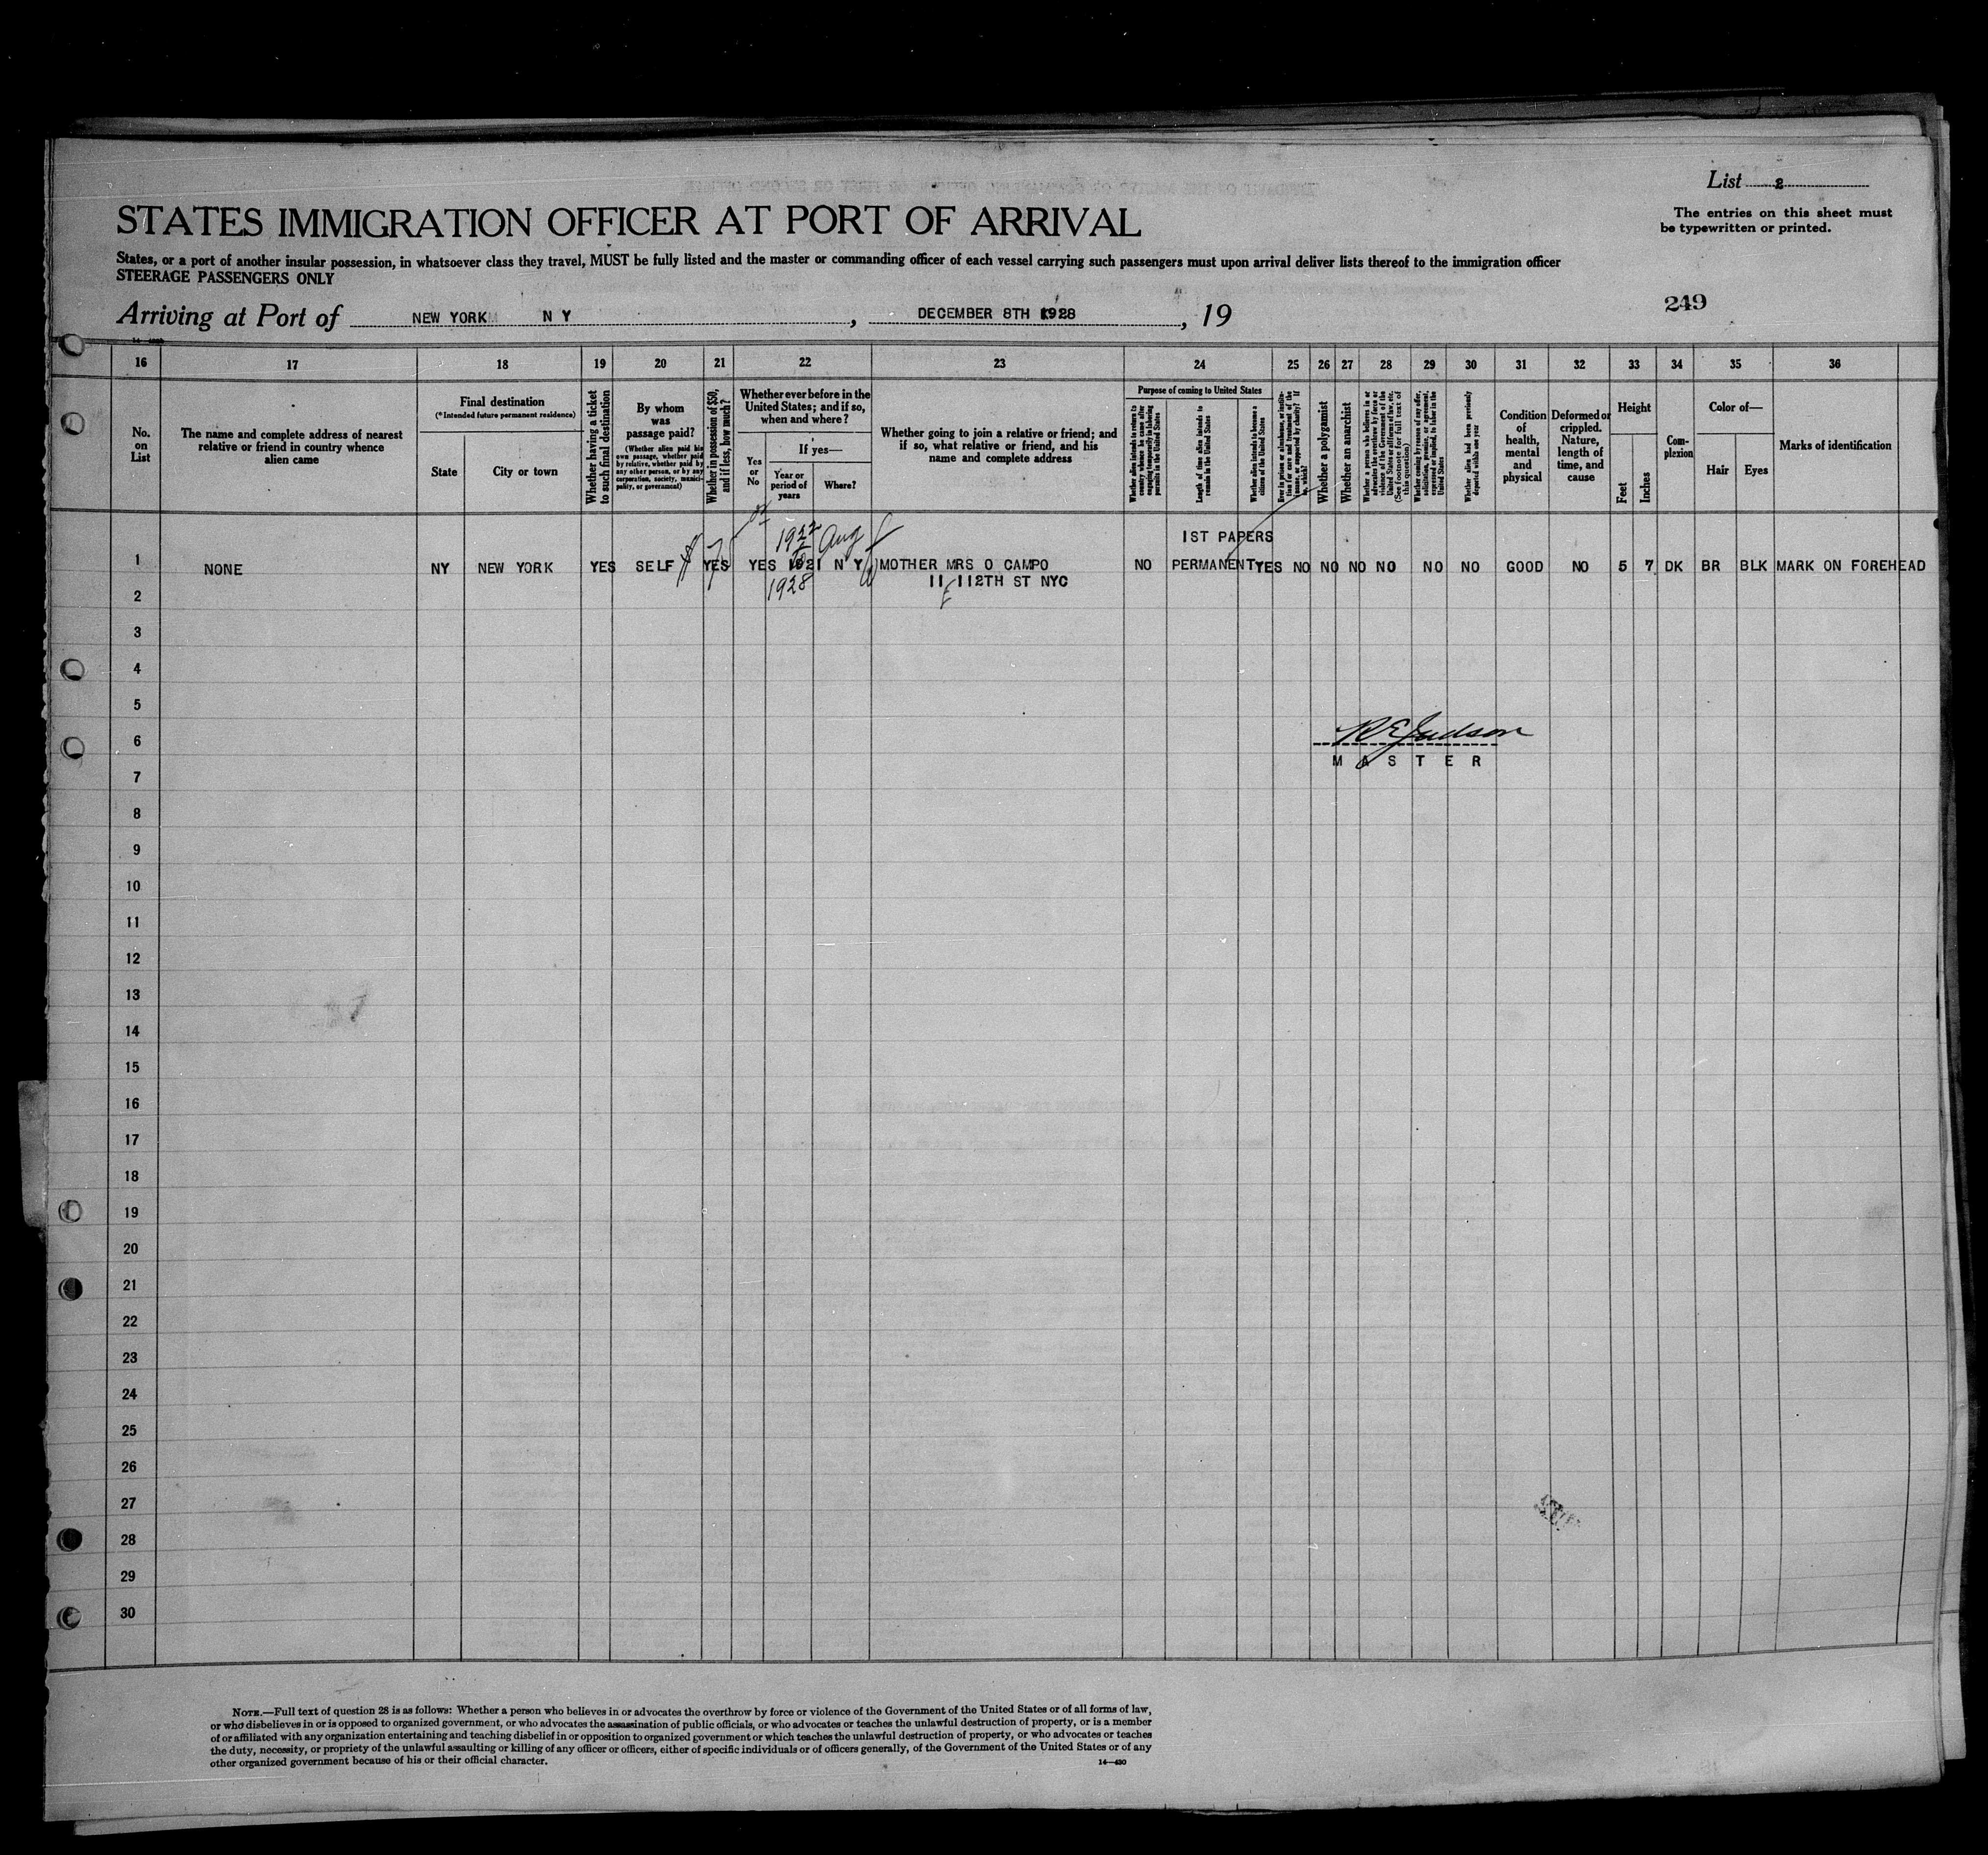 List 2
The entries on this sheet must
be typewritten or printed.
STATES IMMIGRATION OFFICER AT PORT OF ARRIVAL
States, or a port of another insular possession, in whatsoever class they travel, MUST be fully listed and the master or commanding officer of each vessel carrying such passengers must upon arrival deliver lists thereof to the immigration officer
STEERAGE PASSENGERS ONLY
249
Arriving at Port of NEW YORK N Y, DECEMBER 8TH 1928, 19
16 17 18 19 20 21 22 23 24 25 26 27 28 29 30 31 32 33 34 35 36
No.
on
List
The name and complete address of nearest
relative or friend in country whence
alien came
Final destination
(*Intended future permanent residence)
State
City or town
Whether having a ticket
to such final destination
By whom
was
passage paid?
(Whether alien paid his
own passage, whether paid
by relative, whether paid by
any other person, or by any
corporation, society, munici-
pality, or government)
Whether in possession of $50,
and if less, how much?
Whether ever before in the
United States; and if so,
when and where?
Yes
or
No
If yes—
Year or
period of
years
Where?
Whether going to join a relative or friend; and
if so, what relative or friend, and his
name and complete address
Purpose of coming to United States
Whether alien intends to return to
country whence he came after
engaging temporarily in laboring
pursuits in the United States
Length of time alien intends to
remain in the United States
Whether alien intends to become a
citizen of the United States
Ever in prison or almshouse, or institu-
tion for care and treatment of the
insane, or supported by charity? If
so, which?
Whether a polygamist
Whether an anarchist
Whether a person who believes in or
advocates the overthrow by force or
violence of the Government of the
United States or all forms of law, etc.
(See footnote for full text of
this question)
Whether coming by reason of any offer,
solicitation, promise, or agreement,
expressed or implied, to labor in the
United States
Whether alien had been previously
deported within one year
Condition
of
health,
mental
and
physical
Deformed or
crippled.
Nature,
length of
time, and
cause
Height
Feet
Inches
Com-
plexion
Color of—
Hair
Eyes
Marks of identification
1922 Aug
1ST PAPERS
1 NONE NY NEW YORK YES SELF YES YES 1921 N Y MOTHER MRS O CAMPO NO PERMANENT YES NO NO NO NO NO NO GOOD NO 5 7 DK BR BLK MARK ON FOREHEAD
1928 11 E 112TH ST NYC
2
3
4
5
R E Judson
6
MASTER
7
8
9
10
11
12
13
14
15
16
17
18
19
20
21
22
23
24
25
26
27
28
29
30
NOTE.—Full text of question 28 is as follows: Whether a person who believes in or advocates the overthrow by force or violence of the Government of the United States or of all forms of law,
or who disbelieves in or is opposed to organized government, or who advocates the assassination of public officials, or who advocates or teaches the unlawful destruction of property, or is a member
of or affiliated with any organization entertaining and teaching disbelief in or opposition to organized government or which teaches the unlawful destruction of property, or who advocates or teaches
the duty, necessity, or propriety of the unlawful assaulting or killing of any officer or officers, either of specific individuals or of officers generally, of the Government of the United States or of any
other organized government because of his or their official character.
14—430